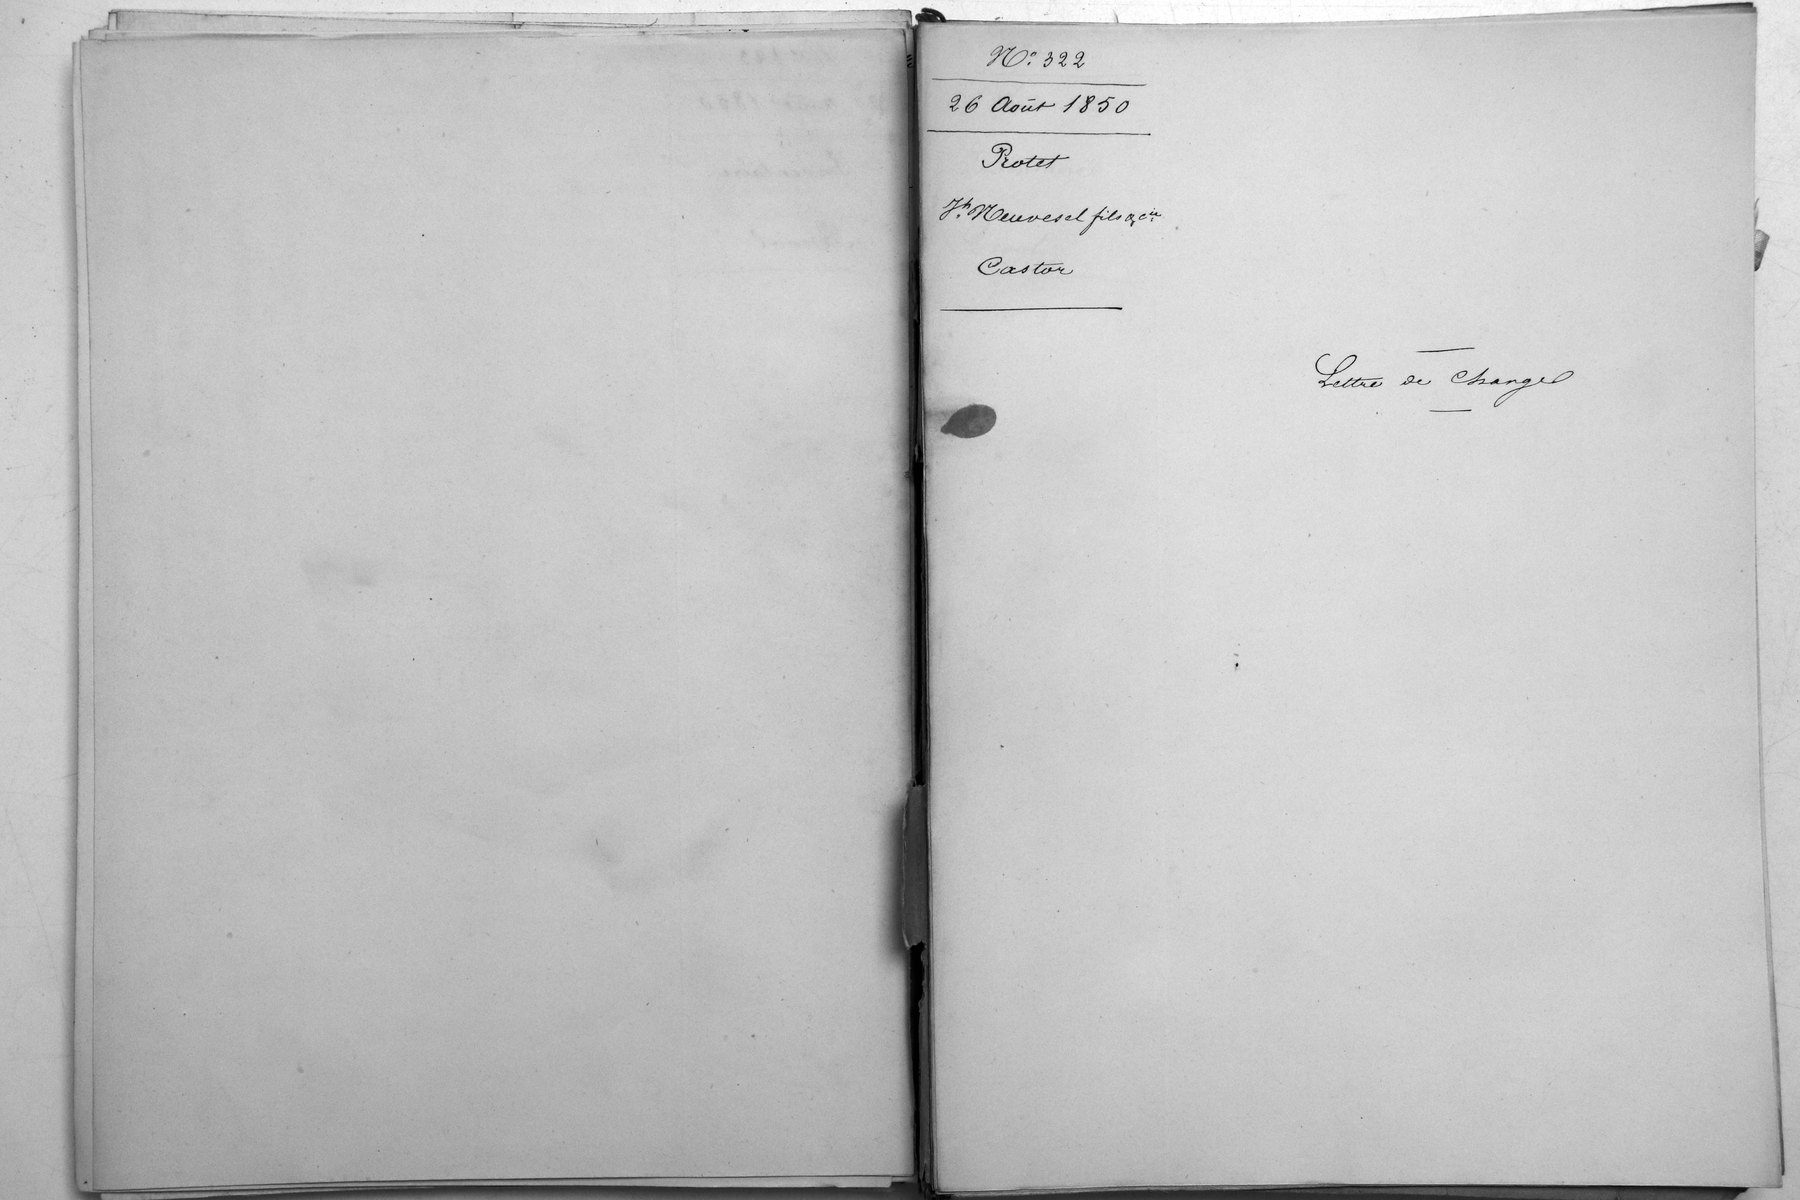 N.° 322
26 Août 1850
Protet
Jh. Neuvesel fils & Cie
Castor
Lettre de Change